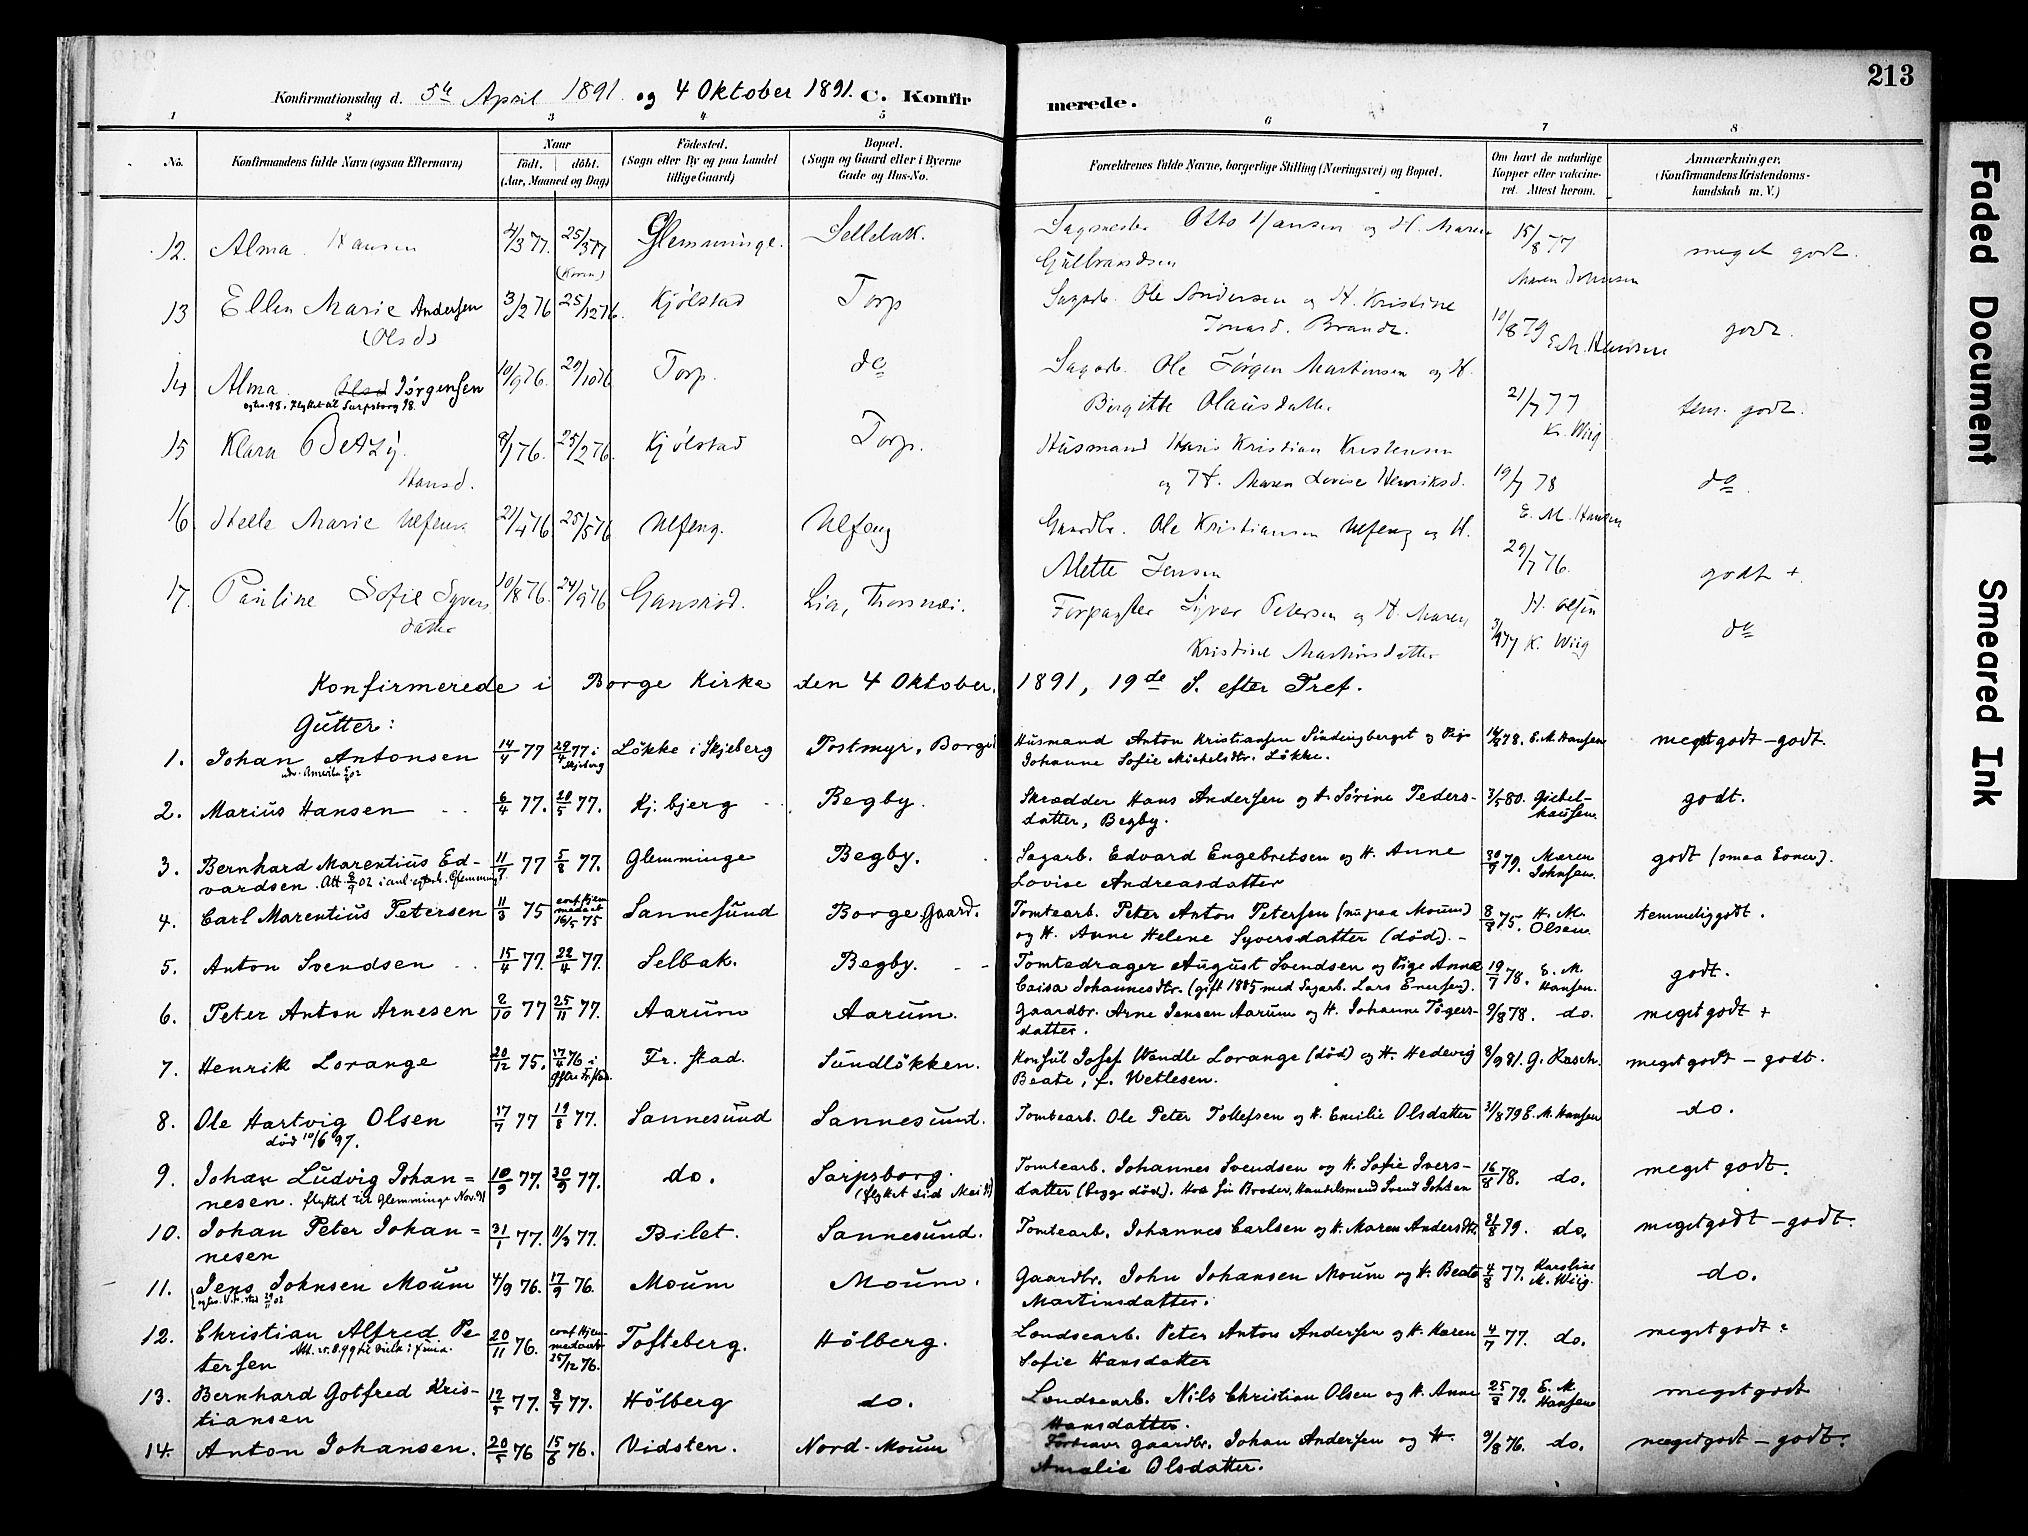 213
Konfirmationsdag d. 5te April 1891 og 4 Oktober 1891. C. Konfirmerede.
1 2 3 4 5 6 7 8
No. Konfirmandens fulde Navn (ogsaa Efternavn) Naar født, døbt. (Aar, Maaned og Dag) Fødested. (Sogn eller By og paa Landet tillige Gaard) Bopæl. (Sogn og Gaard eller i Byerne Gade og Hus-No. Forældrenes fulde Navne, borgerlige Stilling (Næringsvei) og Bopæl. Om havt de naturlige Kopper eller vakcineret. Attest herom. Anmærkninger. (Konfirmandens Kristendomskundskab m. V.)
12. Alma Hansen 4/3 77. 25/3 77 Glemminge. Sellebak. Otto Hansen og H. Maren Gulbrandsen 15/8 77 Maren Johnsen meget godt.
13 Ellen Marie Andersen (Olsd) 3/2 76 25/12 76. Kjølstad Torp Sagarb. Ole Andersen og H. Kristine 10/8 79 E.M. Hansen godt.
14 Alma Olsd Jørgensen 10/9 76. 29/10 76 Torp. do Sagarb. Ole Jørgen Martinsen og H. Birgitte Olausdatter 21/7 77 K. Wiig tem. godt.
flyttet til Sarpsborg 98.
15 Klara Betzy Hansd. 8/1 76. 25/2 76. Kjølstad Torp. Husmand Hans Kristian Kristensen og H. Maren Lovise Henriksd. 19/7 78 E. M. Hansen do.
16. Helle Marie Ulfeng 21/4 76 25/5 76 Ulfeng. Ulfeng Gaardbr. Ole Kristiansen Ulfeng og H. Alette Jensen 29/7 76. H. Olsen godt +
17. Pauline Sofie Syversdatter 10/8 76. 24/9 76 Gansrød. Lia, Thorsnæs. Forpagter Syver Petersen og H. Maren Kristine Martinsdatter K. Wiig do
Konfirmerede i Borge Kirke den 4 Oktober, 1891, 19de S. efter Tref.
Gutter:
1. Johan Antonsen 14/4 77 29/4 77 i Skjeberg Løkke i Skjeberg Postmyr, Borge Husmand Anton Kristiansen og Pige Johanne Sofie Michelsdtr. Løkke. E. M. Hansen meget godt – godt.
2. Marius Hansen 6/4 77. 20/5 77. Kj. bjerg Begby. Skrædder Hans Andersen og H. Sørine Pedersdatter, Begby. 3/5 80. Giebelhausen godt.
3. Bernhard Marentius Edvardsen. 11/7 77 5/8 77. Glemminge Begby. Sagarb. Edvard Engebretsen og H. Anne Lovise Andreasdatter 30/9 79. Maren Johnsen. godt (smaa Evner).
4. Carl Marentius Petersen 11/3 75 conf. hjemmedøbt 16/5 75 Sannesund Borge Gaard. Tomtearb. Peter Anton Petersen (nu paa Moum) og H. Anne Helene Syversdatter (død). – 8/8 75. H. M. Olsen. temmelig godt.
5. Anton Svendsen 15/4 77. 22/4 77. Selbak. Begby. Tomtedrager August Svendsen og Pige Anna Caisa Johannesdtr. (gift 1885 med Sagarb. Lars Enersen). 19/7 78. E. M. Hansen. godt.
6. Peter Anton Arnesen 2/10 77 25/11 77. Aarum Aarum. Gaardbr. Arne Jensen Aarum og H. Johanne Tøgersdatter. 9/8 78. do. meget godt +
7. Henrik Lorange 20/12 75. 17/4 76 i Fr. stad. Sundløkken. Konsul Josef Wendle Lorange (død) og H. Hedevig Beate, f. Wetlesen. 8/9 81. G. Rasch. meget godt – godt.
8. Ole Hartvig Olsen 17/7 77 19/8 77. Sannesund Sannesund. Tomtearb. Ole Peter Tollefsen og H. Emilie Olsdatter 3/8 79 E. M. Hansen do.
død 10/6 97.
9. Johan Ludvig Johannesen. flyttet til Glemminge Nov. 91 10/9 77. 30/9 77. do. Sarpsborg. Tomtearb. Johannes Svendsen og H. Sofie Iversdatter (begge død). Hos sin Broder, Handelsmand Svend Johsen 16/8 78. do. meget godt.
10. Johan Peter Johannesen 31/1 77. 11/3 77. Bilet. Sannesund. Tomtearb. Johannes Carlsen og H. Maren Andersdtr. 21/8 79. do. meget godt – godt.
11. Jens Johnsen Moum 4/9 76. 17/9 76. Moum Moum. Gaardbr. John Johansen Moum og H. Beate Martinsdatter. 4/8 77. Karoline M. Wiig. do.
12. Christian Alfred Petersen 20/11 76. conf. hjemmedøbt 25/12 76. Tofteberg. Hølberg. Londsearb. Peter Anton Andersen og H. Karen Sofie Hansdatter 4/7 77. do. meget godt
13. Bernhard Gotfred Kristiansen 12/5 77. 8/7 77. Hølberg do. Londsearb. Nils Christian Olsen og H. Anne Hansdatter. 25/8 79. E. M. Hansen meget godt
14. Anton Johansen. 20/5 76 15/6 76. Vidsten. Nord-Moum Gaardbr. Johan Andersen og H. Amalie Olsdatter. 9/8 76. do. meget godt – godt.
Faded Document
Smeared Ink